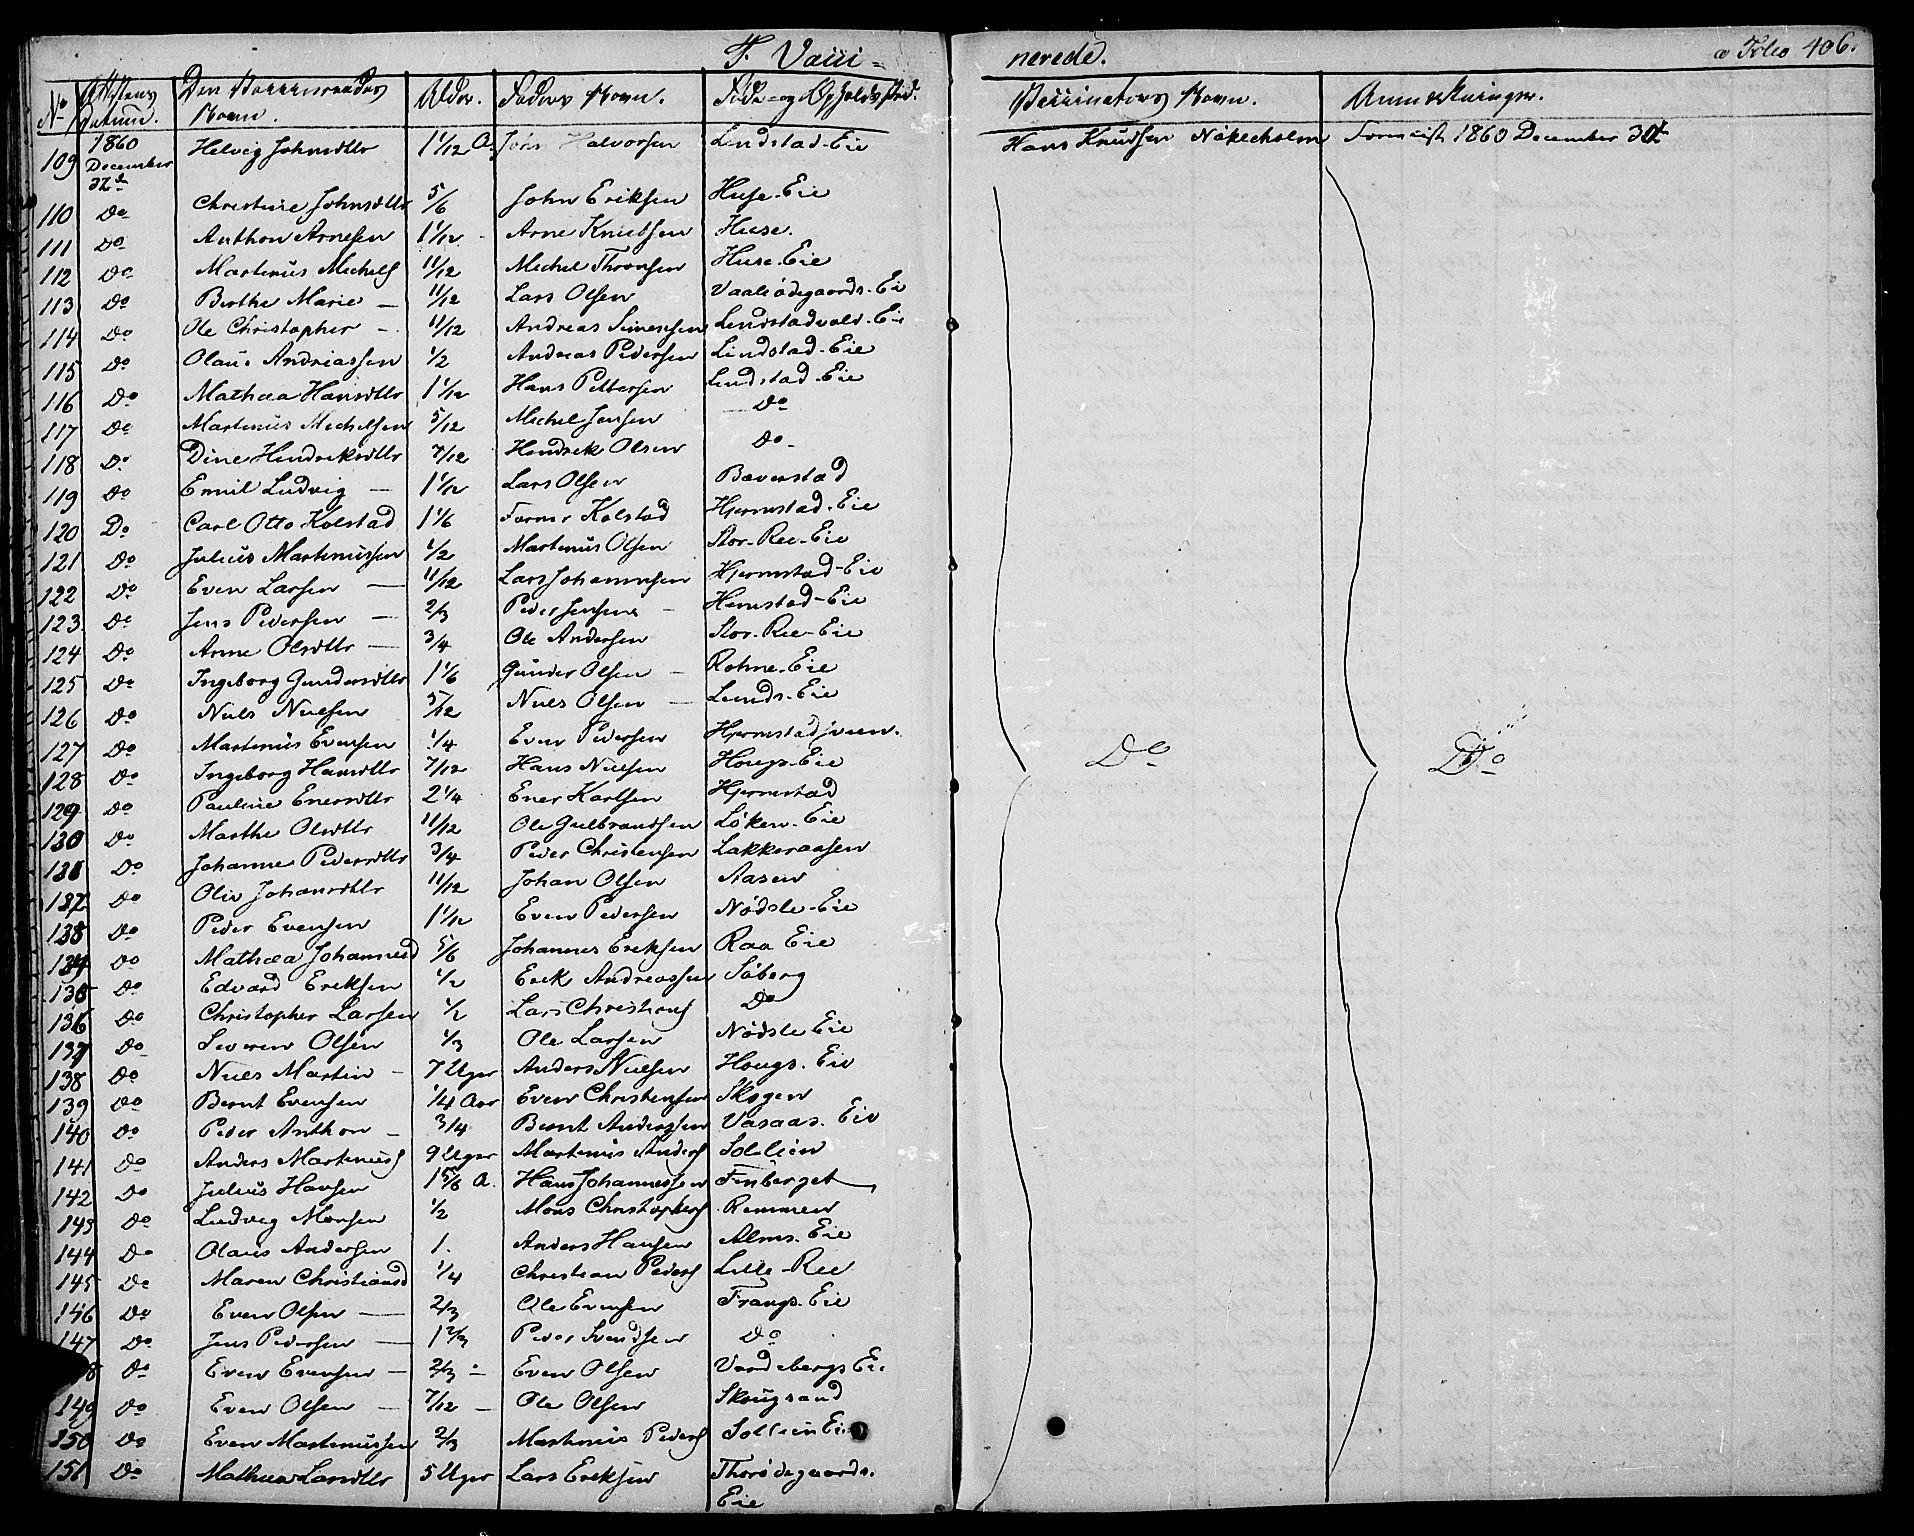 F. Vacci-nerede. Folio 406.
No Attestens Datum. Den Vaccineredes Navn. Alder. Faders Navn. Føde- og Opholds Sted. Vaccinators Navn. Anmærkninger.
109 1860 December 31te Helvig Johnsdtr 1 1/12 A. Johs Halvorsen Lindstad-Eie Hans Knudsen Nøkleholm 1860 December 30t
110 Do Christine Johnsdtr 5/6 John Eriksen Huse-Eie
111 Do Anthon Arnesen 1 1/12 Arne Knudsen Huse.
112 Do Martinus Michels 11/12 Michel Thronsen Huse-Eie
113 Do Berthe Marie — 11/12 Lars Olsen Vaaleødegaards-Ei
114 Do Ole Christopher - 11/12 Andreas Simensen Lindstadvold-Eie
115 Do Olaus Andriassen 1/2 Andreas Pedersen Lindstad-Eie
116 Do Mathea Hansdtr 1 1/12 Hans Pettersen Lindstad-Eie
117 Do Martinus Michelsen 5/12 Michel Jensen Do
118 Do Dine Hendriksdtr 7/12 Hendrik Olsen Do-
119 Do Emil Ludvig — 1 1/12 Lars Olsen Bæverstad
120 Do Carl Otto Kolstad 1 1/6 Kolstad Hjermstad-Eie
121 Do Julius Martinussen 1/2 Martinus Olsen Stor-Ree-Eie
122 Do Even Larsen — 11/12 Lars Johannesen Hjermstad-Eie
123 Do Jens Pedersen — 2/3 Peder Jensen — Hemstad-Eie
124 Do Anne Olsdtr — 3/4 Ole Andersen Stor-Ree-Eie
125 Do Ingeborg Gundersdtr 1 1/6 Gunder Olsen — Rohne-Eie
126 Do Niels Nielsen 5/12 Niels Olsen — Lunds-Eie
127 Do Martinus Evensen 1/4 Even Pedersen Hjermstadsveen. Do Do
128 Do Ingeborg Hansdtr 7/12 Hans Nielsen Hougs-Eie
129 Do Pauline Enersdtr 2 1/4 Ener Karlsen Hjermstad
130 Do Marthe Olsdtr 11/12 Ole Gulbrandsen Løken-Eie
131 Do Johanne Pedersdtr 3/4 Peder Christensen Lakkeraasen
132 Do Oliv Johansdtr 11/12 Johan Olsen Aasen
133 Do Peder Evensen 1 1/12 Even Pedersen Nødsle-Eie
134 Do Mathea Johannesd 5/6 Johannes Eriksen Raa Eie
135 Do Edvard Eriksen 1/2 Erik Andreassen Søberg
136 Do Christopher Larsen 1/2 Lars Christians Do
137 Do Severen Olsen 1/3 Ole Larsen Nødsle Eie
138 Do Niels Martin - 7 Uger Anders Nielsen Hougs. Eie
139 Do Bernt Evensen 1/4 Aar Even Christensen Skogen
140 Do Peder Anthon — 3/4 Bernt Anderssen Vasaas. Eie
141 Do Anders Martinuss 9 Uger Martinus Anders Sollien
142 Do Julius Hansen 1 5/6 A. Hans Johannessen Finberget
143 Do Ludvig Monsen 1/2 Mons Christophers Remmen
144 Do Olaus Andersen 1. Anders Hansen Alms. Eie
145 Do Maren Christiansd 1/4 Christian Peders Lille-Ree
146 Do Even Olsen — 2/3 Ole Evensen Frangs-Eie
147 Do Jens Pedersen — 1 2/3 Peder Svendsen Do
8 Do Even Evensen — 2/3 - Even Olsen Vardebergs Eie
149 Do Even Olsen — 7/12 — Ole Olsen Skougsand
150 Do Even Martinussen 2/3 Martinus Peders Sollien Eie
151 Do Mathea Larsdtr 5 Uger Lars Eriksen Thorødegaards.
Eie